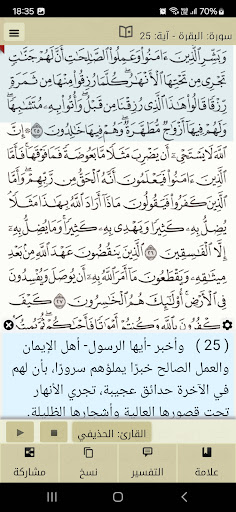 18:35 79%
سورة: البقرة - آية: 25
وَبَشِّرِ الَّذِينَ ءَامَنُوا وَعَمِلُوا الصَّٰلِحَٰتِ أَنَّ لَهُمْ جَنَّٰتٍ
تَجْرِي مِن تَحْتِهَا الْأَنْهَٰرُ كُلَّمَا رُزِقُوا مِنْهَا مِن ثَمَرَةٍ
رِّزْقًا قَالُوا هَٰذَا الَّذِي رُزِقْنَا مِن قَبْلُ وَأُتُوا بِهِ مُتَشَٰبِهًا
وَلَهُمْ فِيهَا أَزْوَٰجٌ مُّطَهَّرَةٌ وَهُمْ فِيهَا خَٰلِدُونَ ٢٥ ۞ إِنَّ
اللَّهَ لَا يَسْتَحْيِي أَن يَضْرِبَ مَثَلًا مَّا بَعُوضَةً فَمَا فَوْقَهَا فَأَمَّا
الَّذِينَ ءَامَنُوا فَيَعْلَمُونَ أَنَّهُ الْحَقُّ مِن رَّبِّهِمْ وَأَمَّا
الَّذِينَ كَفَرُوا فَيَقُولُونَ مَاذَا أَرَادَ اللَّهُ بِهَٰذَا مَثَلًا
يُضِلُّ بِهِ كَثِيرًا وَيَهْدِي بِهِ كَثِيرًا وَمَا يُضِلُّ بِهِ
إِلَّا الْفَٰسِقِينَ ٢٦ الَّذِينَ يَنقُضُونَ عَهْدَ اللَّهِ مِن بَعْدِ
مِيثَٰقِهِ وَيَقْطَعُونَ مَا أَمَرَ اللَّهُ بِهِ أَن يُوصَلَ وَيُفْسِدُونَ
فِي الْأَرْضِ أُولَٰئِكَ هُمُ الْخَٰسِرُونَ ٢٧ كَيْفَ
تَكْفُرُونَ بِاللَّهِ وَكُنتُمْ أَمْوَٰتًا فَأَحْيَٰكُمْ ثُمَّ يُمِيتُكُمْ
( 25 ) وأخبر -أيها الرسول- أهل الإيمان
والعمل الصالح خبرًا يملؤهم سرورًا، بأن لهم
في الآخرة حدائق عجيبة، تجري الأنهار
تحت قصورها العالية وأشجارها الظليلة.
القارئ: الحذيفي
علامة التفسير نسخ مشاركة